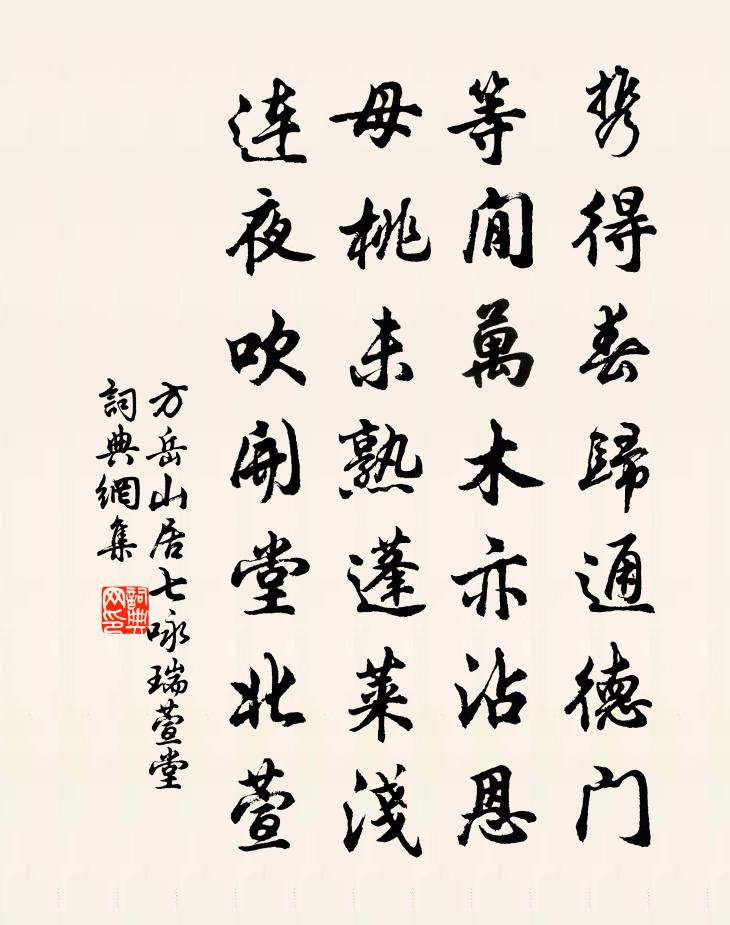 携得春歸通德门
等閒萬木亦沾恩
母桃未熟蓬萊淺
连夜吹開堂北萱
方岳山居七咏瑞萱堂
詞典網集
詞典网印